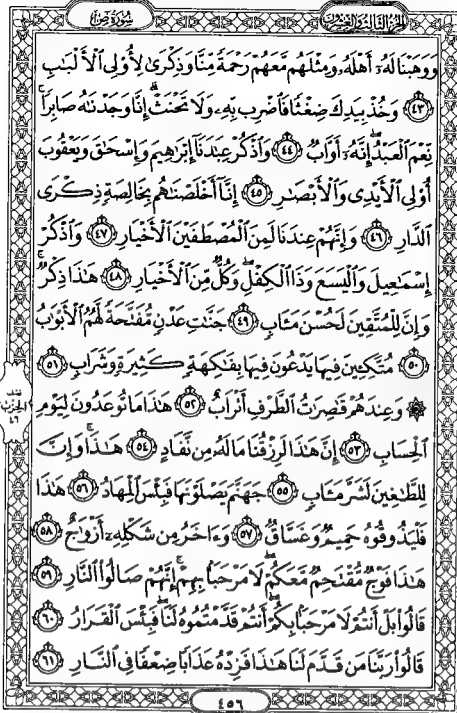 الجزء الثالث والعشرون
سورة ص
وَوَهَبْنَا لَهُۥٓ أَهْلَهُۥ وَمِثْلَهُم مَّعَهُمْ رَحْمَةً مِّنَّا وَذِكْرَىٰ لِأُوْلِى ٱلْأَلْبَٰبِ
﴿٤٣﴾ وَخُذْ بِيَدِكَ ضِغْثًا فَٱضْرِب بِّهِۦ وَلَا تَحْنَثْ إِنَّا وَجَدْنَٰهُ صَابِرًا
نِّعْمَ ٱلْعَبْدُ إِنَّهُۥٓ أَوَّابٌ ﴿٤٤﴾ وَٱذْكُرْ عِبَٰدَنَآ إِبْرَٰهِيمَ وَإِسْحَٰقَ وَيَعْقُوبَ
أُوْلِى ٱلْأَيْدِى وَٱلْأَبْصَٰرِ ﴿٤٥﴾ إِنَّآ أَخْلَصْنَٰهُم بِخَالِصَةٍ ذِكْرَى
ٱلدَّارِ ﴿٤٦﴾ وَإِنَّهُمْ عِندَنَا لَمِنَ ٱلْمُصْطَفَيْنَ ٱلْأَخْيَارِ ﴿٤٧﴾ وَٱذْكُرْ
إِسْمَٰعِيلَ وَٱلْيَسَعَ وَذَا ٱلْكِفْلِ وَكُلٌّ مِّنَ ٱلْأَخْيَارِ ﴿٤٨﴾ هَٰذَا ذِكْرٌ
وَإِنَّ لِلْمُتَّقِينَ لَحُسْنَ مَـَٔابٍ ﴿٤٩﴾ جَنَّٰتِ عَدْنٍ مُّفَتَّحَةً لَّهُمُ ٱلْأَبْوَٰبُ
﴿٥٠﴾ مُتَّكِـِٔينَ فِيهَا يَدْعُونَ فِيهَا بِفَٰكِهَةٍ كَثِيرَةٍ وَشَرَابٍ ﴿٥١﴾
۞ وَعِندَهُمْ قَٰصِرَٰتُ ٱلطَّرْفِ أَتْرَابٌ ﴿٥٢﴾ هَٰذَا مَا تُوعَدُونَ لِيَوْمِ
ٱلْحِسَابِ ﴿٥٣﴾ إِنَّ هَٰذَا لَرِزْقُنَا مَا لَهُۥ مِن نَّفَادٍ ﴿٥٤﴾ هَٰذَا وَإِنَّ
لِلطَّٰغِينَ لَشَرَّ مَـَٔابٍ ﴿٥٥﴾ جَهَنَّمَ يَصْلَوْنَهَا فَبِئْسَ ٱلْمِهَادُ ﴿٥٦﴾ هَٰذَا
فَلْيَذُوقُوهُ حَمِيمٌ وَغَسَّاقٌ ﴿٥٧﴾ وَءَاخَرُ مِن شَكْلِهِۦٓ أَزْوَٰجٌ ﴿٥٨﴾
هَٰذَا فَوْجٌ مُّقْتَحِمٌ مَّعَكُمْ لَا مَرْحَبًۢا بِهِمْ إِنَّهُمْ صَالُوا۟ ٱلنَّارِ ﴿٥٩﴾
قَالُوا۟ بَلْ أَنتُمْ لَا مَرْحَبًۢا بِكُمْ أَنتُمْ قَدَّمْتُمُوهُ لَنَا فَبِئْسَ ٱلْقَرَارُ ﴿٦٠﴾
قَالُوا۟ رَبَّنَا مَن قَدَّمَ لَنَا هَٰذَا فَزِدْهُ عَذَابًا ضِعْفًا فِى ٱلنَّارِ ﴿٦١﴾
نصف
الحزب
٤٦
٤٥٦